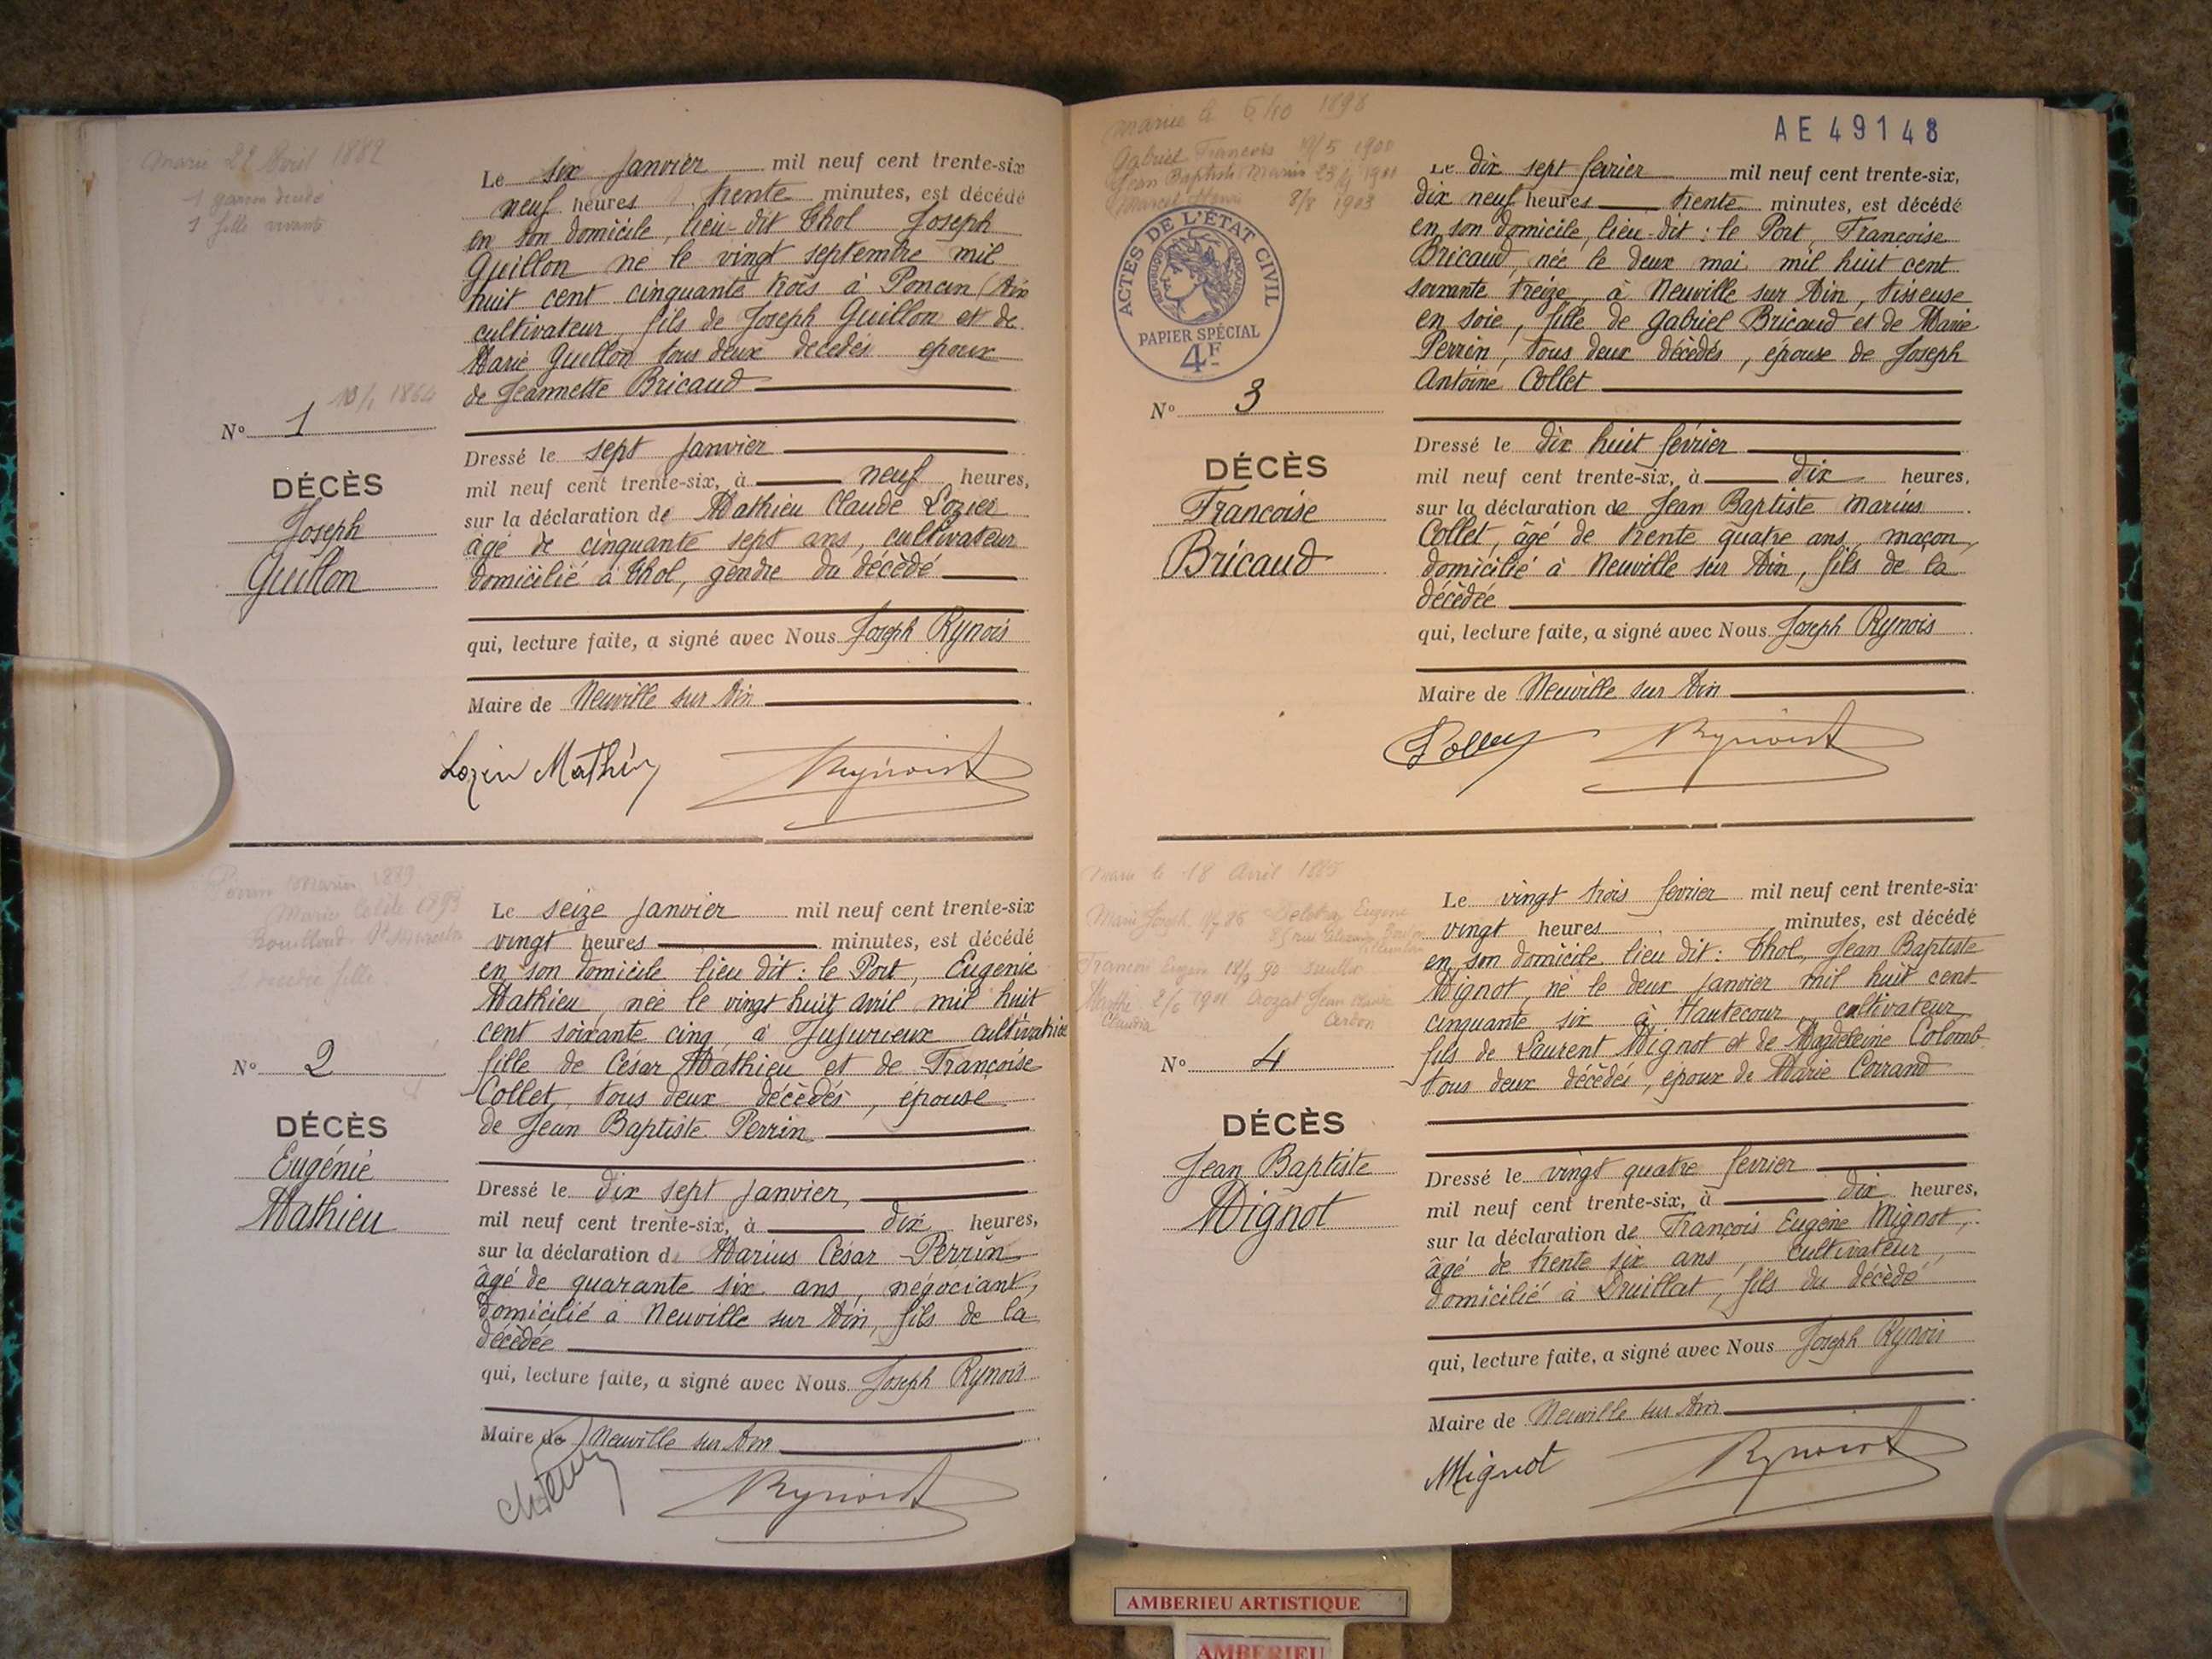 Marié 22 Avril 1882
1 garçon
1 fille vivante
Le six Janvier mil neuf cent trente-six
neuf heures trente minutes, est décédé
en son domicile, lieu-dit Thol Joseph
Guillon né le vingt septembre mil
huit cent cinquante trois à Poncin (Ain
cultivateur, fils de Joseph Guillon et de
Marie Guillon tous deux décédés époux
de Jeannette Bricaud
1864
N° 1
DÉCÈS
Joseph
Guillon
Dressé le sept Janvier
mil neuf cent trente-six, à neuf heures,
sur la déclaration de Mathieu Claude Lozier
âgé de cinquante sept ans, cultivateur
domicilié à Thol, gendre du décédé
qui, lecture faite, a signé avec Nous Joseph Rynois
Maire de Neuville sur Ain
Lozier Mathieu Rynois
Marie Celile 1893
Le seize Janvier mil neuf cent trente-six
vingt heures minutes, est décédé
en son domicile lieu dit : le Port, Eugénie
Mathieu, née le vingt huit avril mil huit
cent soixante cinq, à Jujurieux cultivatrice
fille de César Mathieu et de Françoise
Collet, tous deux décédés, épouse
de Jean Baptiste Perrin
N° 2
DÉCÈS
Eugénie
Mathieu
Dressé le dix sept Janvier,
mil neuf cent trente-six, à dix heures,
sur la déclaration de Marius César Perrin
âgé de quarante six ans, négociant,
domicilié à Neuville sur Ain, fils de la
décédée
qui, lecture faite, a signé avec Nous Joseph Rynois
Maire de Neuville sur Ain
Rynois
AE49148
Mariée à 1898
Gabriel François 1900
Jean Baptiste Marius 1901
Marcel 8/8 1903
ACTES DE L'ÉTAT CIVIL
RÉPUBLIQUE FRANÇAISE
PAPIER SPÉCIAL
4F
Le dix sept février mil neuf cent trente-six,
dix neuf heures trente minutes, est décédé
en son domicile, lieu-dit : le Port, Françoise
Bricaud, née le deux mai mil huit cent
soixante treize, à Neuville sur Ain, tisseuse
en soie, fille de Gabriel Bricaud et de Marie
Perrin, tous deux décédés, épouse de Joseph
Antoine Collet
N° 3
DÉCÈS
Françoise
Bricaud
Dressé le dix huit février
mil neuf cent trente-six, à dix heures,
sur la déclaration de Jean Baptiste Marius
Collet, âgé de trente quatre ans, maçon,
domicilié à Neuville sur Ain, fils de la
décédée
qui, lecture faite, a signé avec Nous Joseph Rynois
Maire de Neuville sur Ain
Collet Rynois
Marié le 18 Avril 1885
François Eugène 90
Marthe 2/6 1901 Crozat Jean
Claudia Cerdon
Le vingt trois février mil neuf cent trente-six
vingt heures minutes, est décédé
en son domicile lieu dit : Thol, Jean Baptiste
Mignot, né le deux janvier mil huit cent
cinquante six à Hautecour, cultivateur
fils de Laurent Mignot et de Magdeleine Colomb
tous deux décédés, époux de Marie Corrand
N° 4
DÉCÈS
Jean Baptiste
Mignot
Dressé le vingt quatre février
mil neuf cent trente-six, à dix heures,
sur la déclaration de François Eugène Mignot,
âgé de trente six ans, cultivateur,
domicilié à Druillat, fils du décédé
qui, lecture faite, a signé avec Nous Joseph Rynois
Maire de Neuville sur Ain
Mignot Rynois
AMBERIEU ARTISTIQUE
AMBERIEU